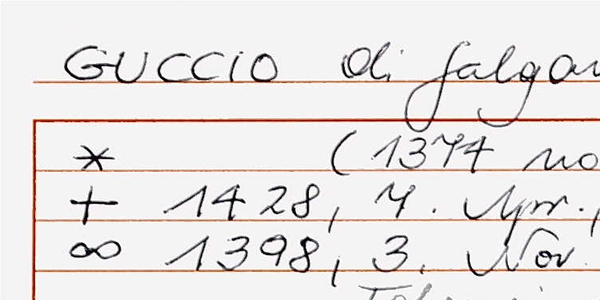 GUCCIO di
* (1374 no
+ 1428, 4. Apr.,
∞ 1398, 3. Nov.